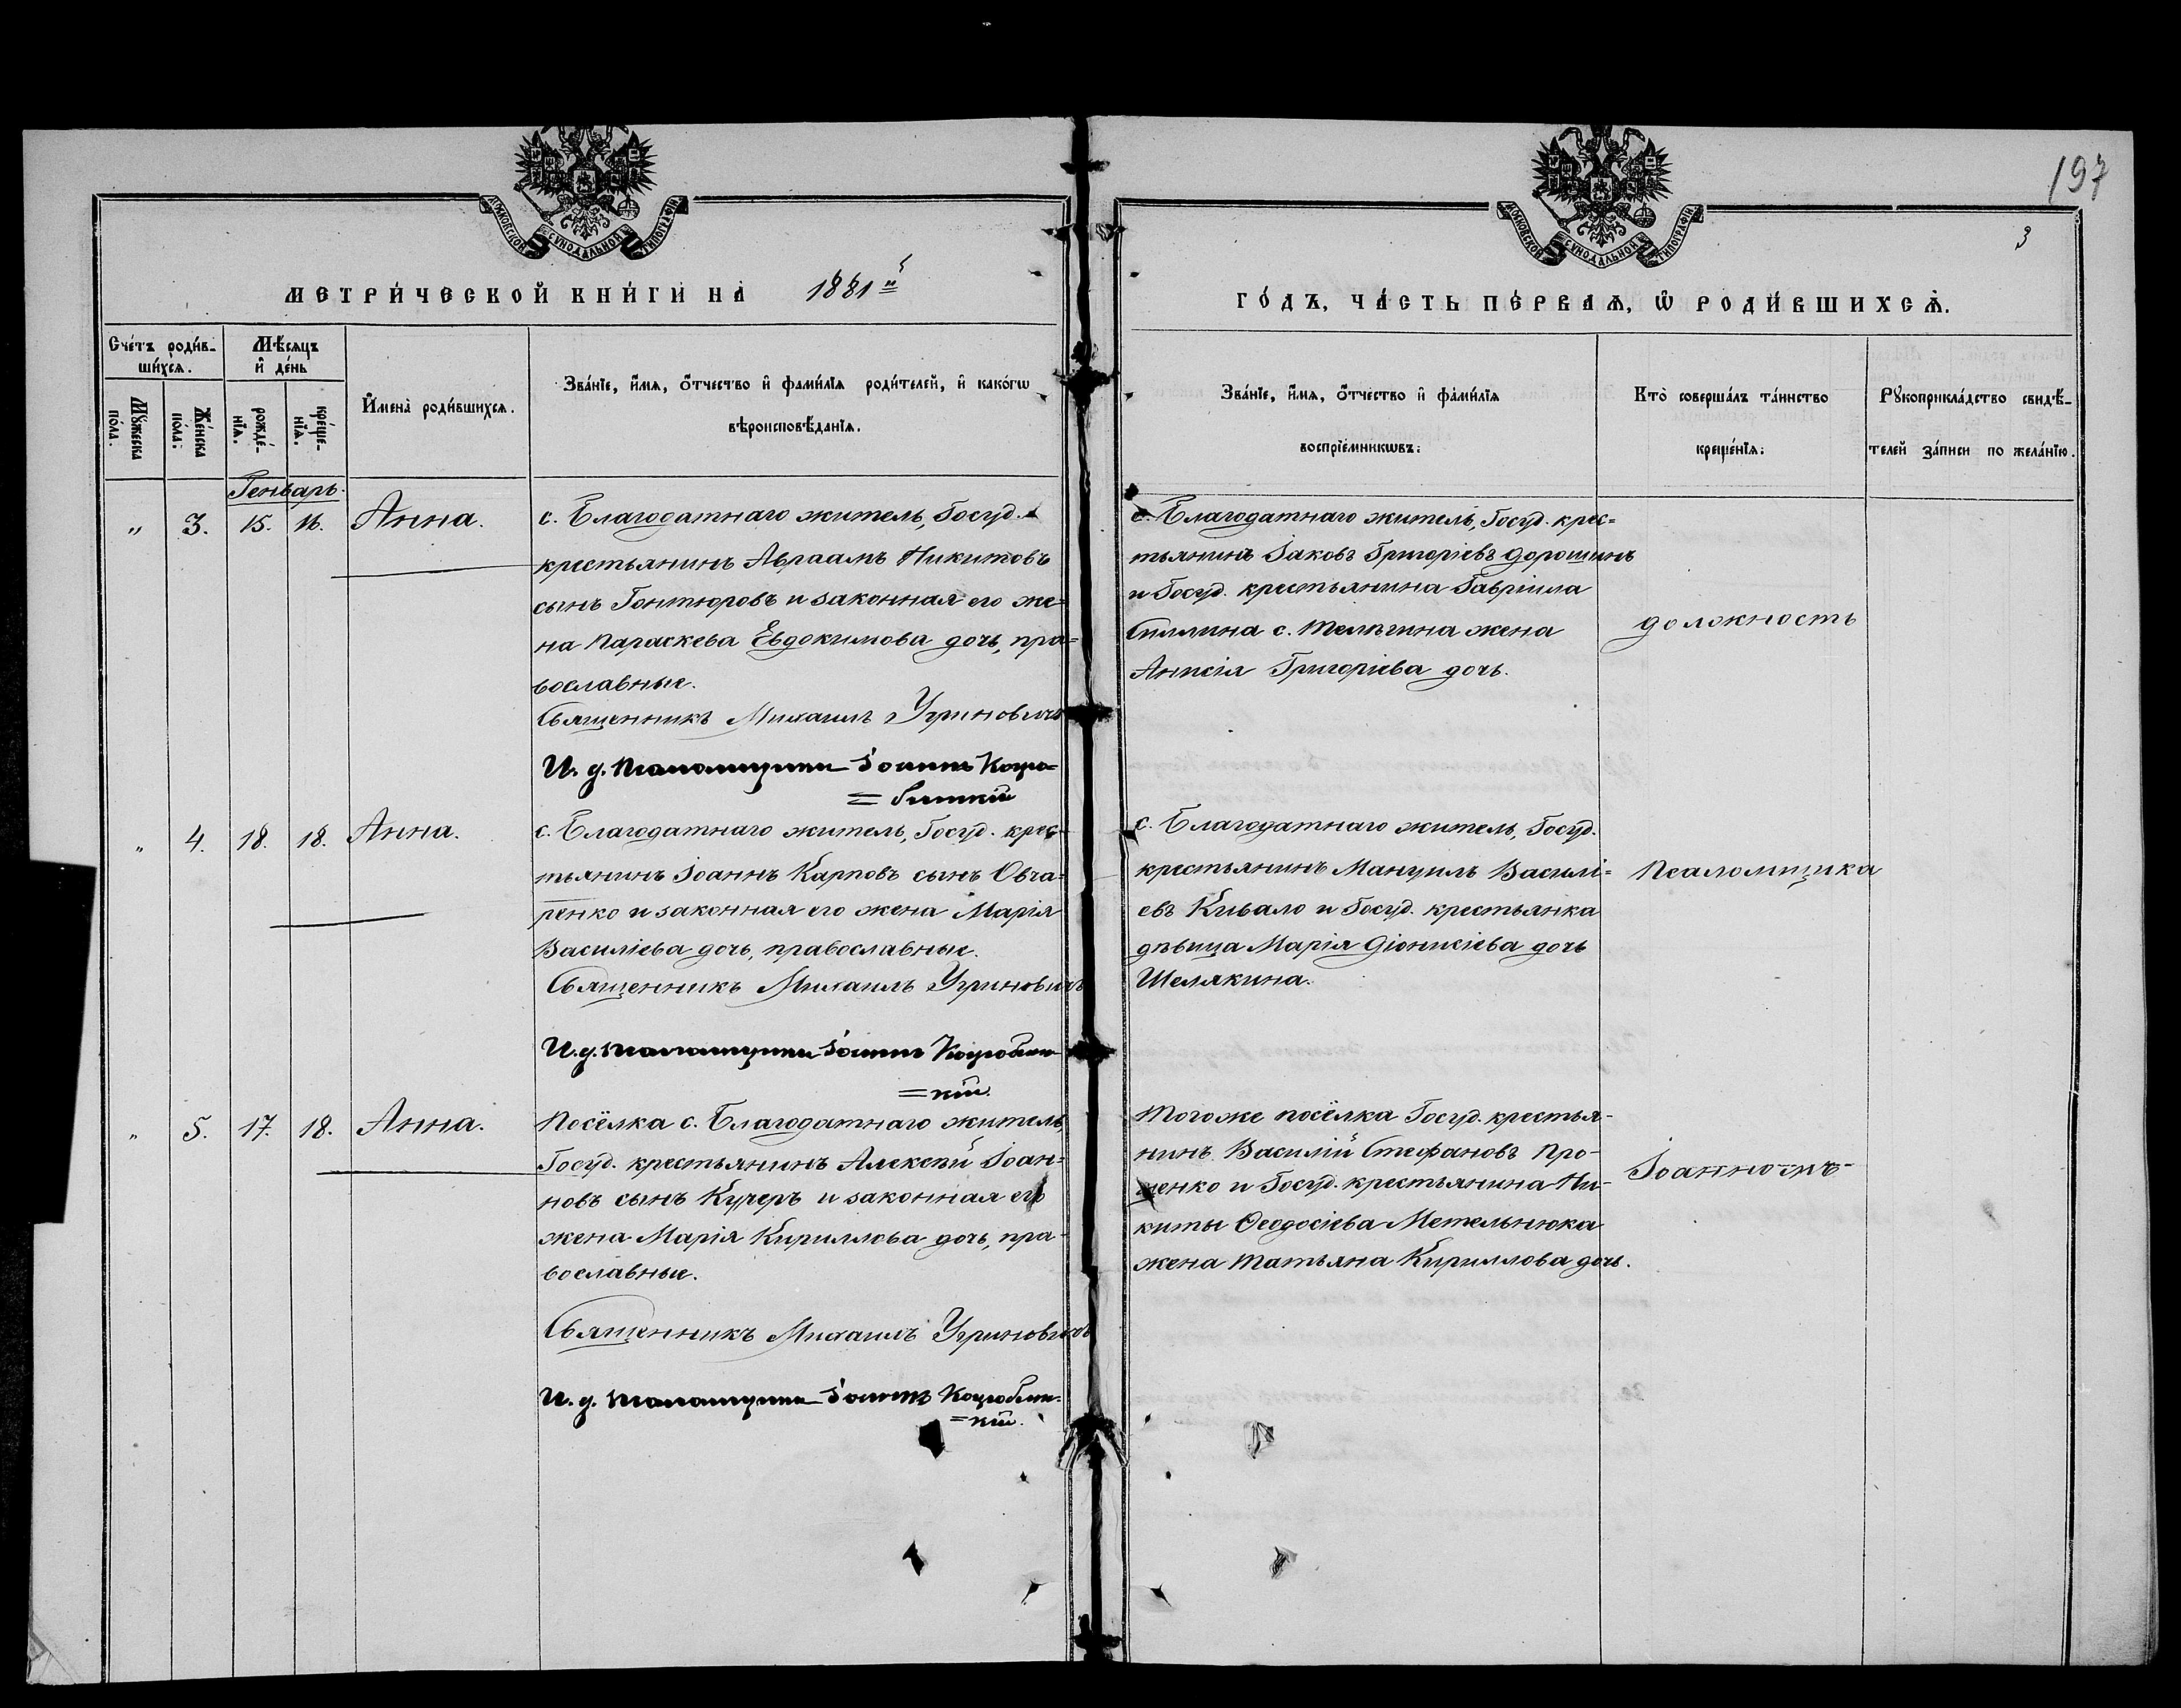 197
3
МОСКОВСКОЙ СѴНОДАЛЬНОЙ ТИПОГРАФІИ
МОСКОВСКОЙ СѴНОДАЛЬНОЙ ТИПОГРАФІИ
МЕТРИ́ЧЕСКОЙ КНИ́ГИ НА 1881й
ГО́ДЪ, ЧА́СТЬ ПЕ́РВАѦ, Ѡ РОДИ́ВШИХСѦ.
Сче́тъ роди́в-
ши́хся.
Мѣ́сяцъ
и҆ де́нь
Мꙋ́жеска
по́ла.
Же́нска
по́ла.
рожде́-
нїѧ.
креще́-
нїѧ.
И҆мена̀ роди́вшихся.
Зва́нїе, и҆́мѧ, ѻ҆́тчество и҆ фами́лїѧ роди́телей, и҆ како́гѡ
вѣроисповѣ́данїѧ.
Зва́нїе, и҆́мѧ, ѻ҆́тчество и҆ фами́лїѧ
воспрїе́мникѡвъ.
Кто̀ соверша́лъ та́инство
креще́нїѧ.
Рꙋкоприкла́дство свидѣ́-
телей за́писи по жела́нїю.
Генварь.
" 3. 15. 16. Анна.
с. Благодатнаго житель, Госуд.
крестьянинъ Авраамъ Никитовъ
сынъ Гонтюровъ и законная его же=
на Параскева Евдокимова дочь, пра=
вославные.
Священникъ Михаилъ Угриновичъ
И. д. Псаломщика Іоаннъ Коцю=
=бинскій
с. Благодатнаго житель, Госуд. крес=
тьянинъ Іаковъ Григоріевъ Дорошинъ
и Госуд. крестьянина Гавріила
с. жена
Анисія Григоріева дочь.
должность
" 4. 18. 18. Анна.
с. Благодатнаго житель, Госуд. крес-
тьянинъ Іоаннъ Карповъ сынъ Овча=
ренко и законная его жена Марія
Василіева дочь, православные.
Священникъ Михаилъ Угриновичъ
И. д. Псаломщика Іоаннъ Коцюбин-
=кій.
с. Благодатнаго житель, Госуд.
крестьянинъ Мануилъ Василі=
евъ Кивало и Госуд. крестьянка
дѣвица Марія Діонисіева дочь
Шелякина.
Псаломщика
" 5. 17. 18. Анна.
Посёлка с. Благодатнаго житель,
Госуд. крестьянинъ Алексѣй Іоан=
новъ сынъ Кучеръ и законная его
жена Марія Кириллова дочь, пра-
вославные.
Священникъ Михаилъ Угриновичъ
И. д. Псаломщика Іоаннъ Коцюбин-
=кій.
Тогоже посёлка Госуд. крестья-
нинъ Василій Стефановъ Про-
ценко и Госуд. крестьянина Ни-
киты Ѳеодосіева Метельнюка
жена Татьяна Кириллова дочь.
Іоанномъ-